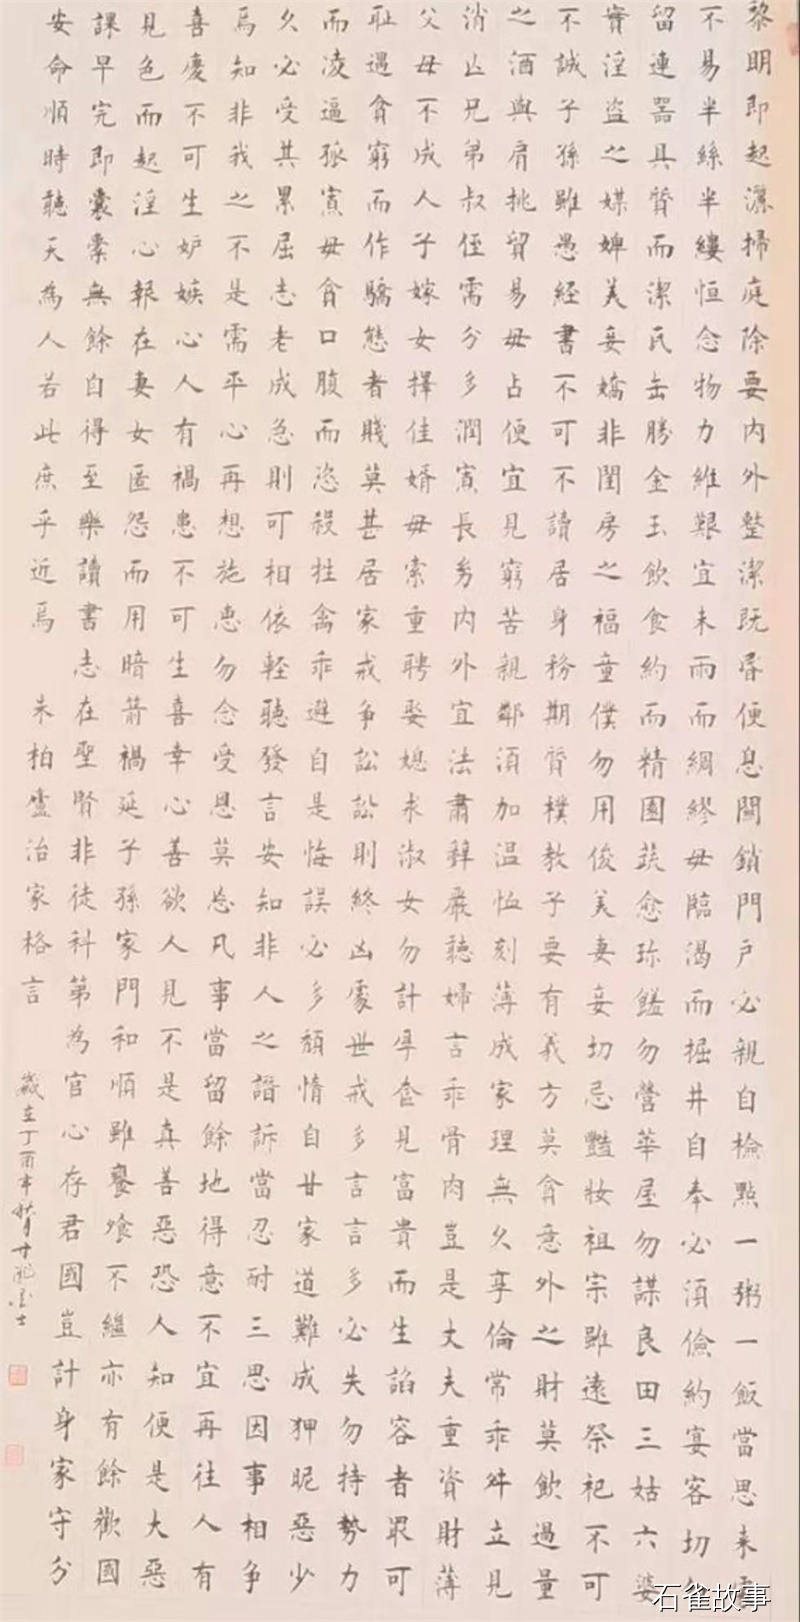 黎明即起灑掃庭除要內外整潔既昏便息關鎖門戶必親自檢點一粥一飯當思來處
不易半絲半縷恒念物力維艱宜未雨而綢繆毋臨渴而掘井自奉必須儉約宴客切勿
留連器具質而潔瓦缶勝金玉飲食約而精園蔬愈珍饈勿營華屋勿謀良田三姑六婆
實淫盜之媒婢美妾嬌非閨房之福童僕勿用俊美妻妾切忌豔妝祖宗雖遠祭祀不可
不誠子孫雖愚經書不可不讀居身務期質樸教子要有義方莫貪意外之財莫飲過量
之酒與肩挑貿易毋占便宜見窮苦親鄰須加温恤刻薄成家理無久享倫常乖舛立見
消亡兄弟叔侄需分多潤寡長幼內外宜法肅辭嚴聽婦言乖骨肉豈是丈夫重資財薄
父母不成人子嫁女擇佳婿毋索重聘娶媳求淑女勿計厚奩見富貴而生諂容者最可
恥遇貧窮而作驕態者賤莫甚居家戒爭訟訟則終凶處世戒多言言多必失勿持勢力
而凌逼孤寡毋貪口腹而恣殺牲禽乖避自是悔誤必多頹惰自甘家道難成狎昵惡少
久必受其累屈志老成急則可相依輕聽發言安知非人之譖訴當忍耐三思因事相爭
焉知非我之不是需平心再想施惠勿念受恩莫忘凡事當留餘地得意不宜再往人有
喜慶不可生妒嫉心人有禍患不可生喜幸心善欲人見不是真善惡恐人知便是大惡
見色而起淫心報在妻女匿怨而用暗箭禍延子孫家門和順雖饔飧不繼亦有餘歡國
課早完即囊橐無餘自得至樂讀書志在聖賢非徒科第為官心存君國豈計身家守分
安命順時聽天為人若此庶乎近焉 朱柏廬治家格言
歲在丁酉年秋月
石雀故事